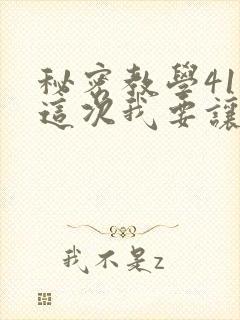 秘密教學41
這次我要讓
我不是z